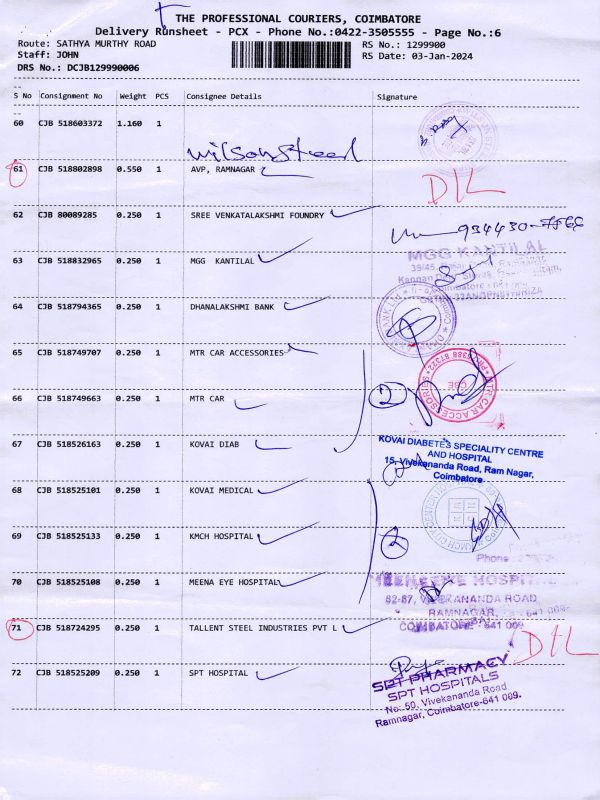 THE PROFESSIONAL COURIERS, COIMBATORE
Delivery Runsheet - PCX - Phone No.:0422-3505555 - Page No.:6
Route: SATHYA MURTHY ROAD
RS No.: 1299900
Staff: JOHN
RS Date: 03-Jan-2024
DRS No.: DCJB129990006
S No Consignment No Weight PCS Consignee Details Signature
60 CJB 518603372 1.160 1
wilson steel
61 CJB 518802898 0.550 1 AVP, RAMNAGAR
DIL
62 CJB 80089285 0.250 1 SREE VENKATALAKSHMI FOUNDRY
63 CJB 518832965 0.250 1 MGG KANTILAL
MGG KANTILAL
64 CJB 518794365 0.250 1 DHANALAKSHMI BANK
65 CJB 518749707 0.250 1 MTR CAR ACCESSORIES
66 CJB 518749663 0.250 1 MTR CAR
2
MTR CAR ACCESSORIES
CBE
67 CJB 518526163 0.250 1 KOVAI DIAB
KOVAI DIABETES SPECIALITY CENTRE
AND HOSPITAL
15, Vivekananda Road, Ram Nagar,
Coimbatore
68 CJB 518525101 0.250 1 KOVAI MEDICAL
69 CJB 518525133 0.250 1 KMCH HOSPITAL
2
Phone
70 CJB 518525108 0.250 1 MEENA EYE HOSPITAL
MEENA EYE HOSPITAL
82-87, VIVEKANANDA ROAD
RAMNAGAR,
COIMBATORE - 641 009
71 CJB 518724295 0.250 1 TALLENT STEEL INDUSTRIES PVT L
DIL
72 CJB 518525209 0.250 1 SPT HOSPITAL
SPT PHARMACY
SPT HOSPITALS
No: 50, Vivekananda Road
Ramnagar, Coimbatore-641 009.